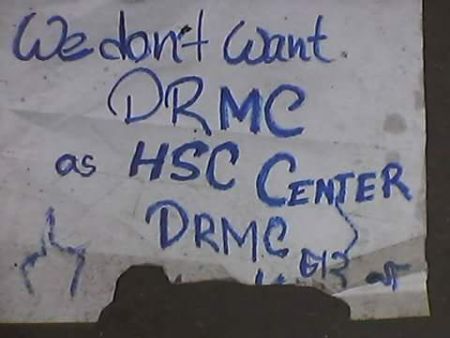 We don't want
DRMC
as HSC CENTER
DRMC